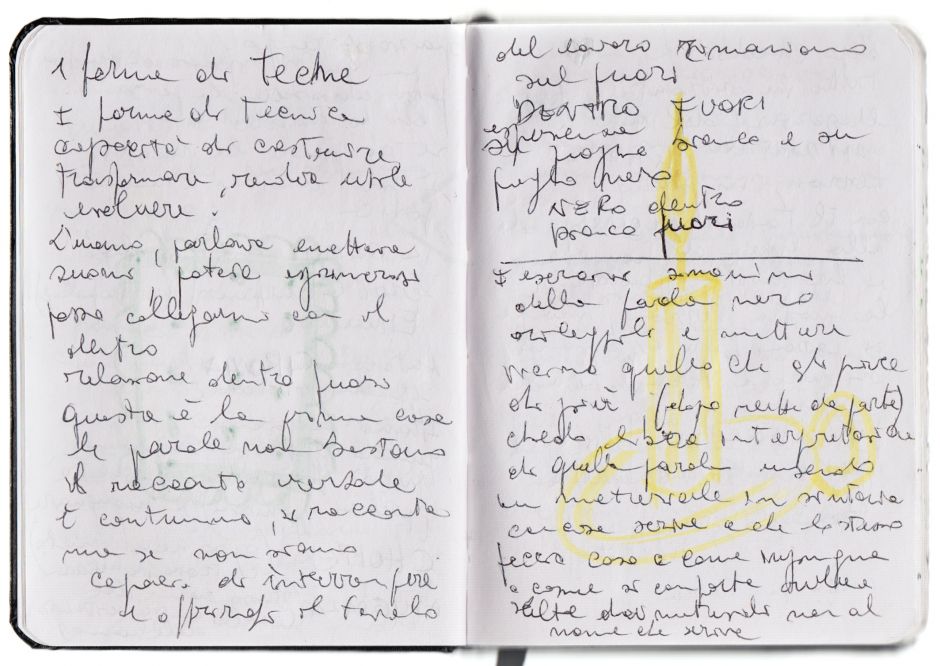 1 forme di techne
I forme di Tecnica
capacità di costruire
trasformare, rendere utile
evolvere.
L'uomo parlava emetteva
suoni potere esprimersi
posso collegarmi con il
dentro
relazione dentro fuori
questa è la prima cosa
le parole non bastano
il racconto verbale
È continuo, si racconta
ma se non siamo
capaci di interrompere
e il tavolo
del lavoro rimaniamo
sul fuori
DENTRO FUORI
esperienza
su foglio bianco e su
foglio nero
NERO dentro
bianco fuori
della parola nero
e mettere
quello che gli piace
di più (dopo mette da parte)
chiedo interpretazione
di quella parola usando
un materiale in sintonia
con cosa scrive e che lo stesso
faccia cosa e come
e come si comporta anche
scelte dai materiali non al
nome che scrive